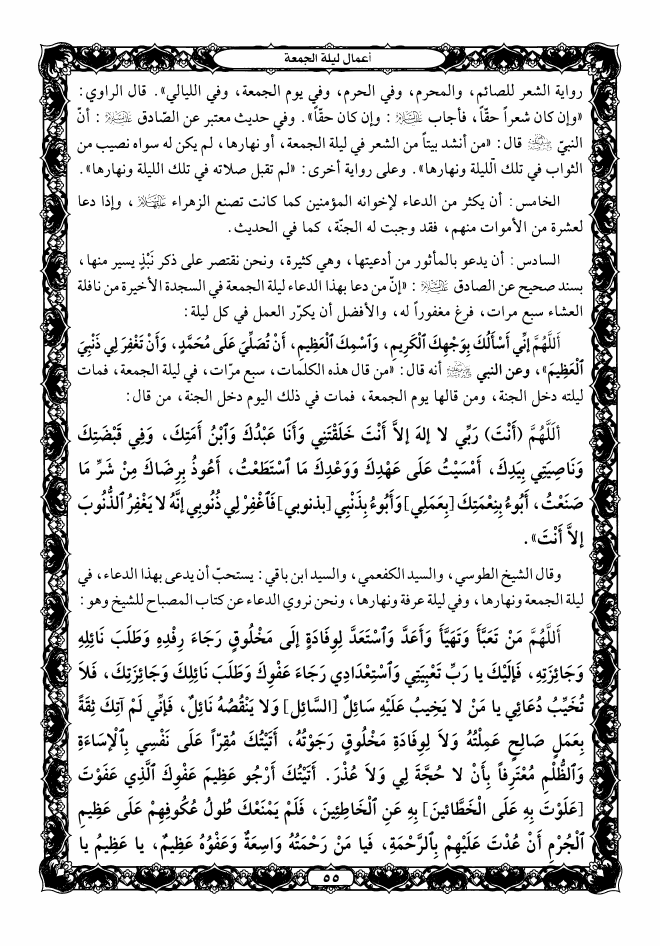 أعمال ليلة الجمعة
رواية الشعر للصائم، والمحرم، وفي الحرم، وفي يوم الجمعة، وفي الليالي». قال الراوي:
«وإن كان شعراً حقّاً، فأجاب عليه السلام: وإن كان حقّاً». وفي حديث معتبر عن الصّادق عليه السلام: أنّ
النبيّ صلى الله عليه وآله قال: «من أنشد بيتاً من الشعر في ليلة الجمعة، أو نهارها، لم يكن له سواه نصيب من
الثواب في تلك الّليلة ونهارها». وعلى رواية أخرى: «لم تقبل صلاته في تلك الليلة ونهارها».
الخامس: أن يكثر من الدعاء لإخوانه المؤمنين كما كانت تصنع الزهراء عليها السلام، وإذا دعا
لعشرة من الأموات منهم، فقد وجبت له الجنّة، كما في الحديث.
السادس: أن يدعو بالمأثور من أدعيتها، وهي كثيرة، ونحن نقتصر على ذكر نَبْذٍ يسير منها،
بسند صحيح عن الصادق عليه السلام: «إنّ من دعا بهذا الدعاء ليلة الجمعة في السجدة الأخيرة من نافلة
العشاء سبع مرات، فرغ مغفوراً له، والأفضل أن يكرّر العمل في كل ليلة:
اَللَّهُمَّ إِنِّي أَسْأَلُكَ بِوَجْهِكَ ٱلْكَرِيمِ، وَٱسْمِكَ ٱلْعَظِيمِ، أَنْ تُصَلِّيَ عَلَى مُحَمَّدٍ، وَأَنْ تَغْفِرَ لِي ذَنْبِيَ
ٱلْعَظِيمَ»، وعن النبي صلى الله عليه وآله أنه قال: «من قال هذه الكلمات، سبع مرّات، في ليلة الجمعة، فمات
ليلته دخل الجنة، ومن قالها يوم الجمعة، فمات في ذلك اليوم دخل الجنة، من قال:
اَللَّهُمَّ (أَنْتَ) رَبِّي لا إلهَ إلاَّ أَنْتَ خَلَقْتَنِي وَأَنَا عَبْدُكَ وَٱبْنُ أَمَتِكَ، وَفِي قَبْضَتِكَ
وَنَاصِيَتِي بِيَدِكَ، أَمْسَيْتُ عَلَى عَهْدِكَ وَوَعْدِكَ مَا ٱسْتَطَعْتُ، أَعُوذُ بِرِضَاكَ مِنْ شَرِّ مَا
صَنَعْتُ، أَبُوءُ بِنِعْمَتِكَ [بِعَمَلِي] وَأَبُوءُ بِذَنْبِي [بذنوبي] فَٱغْفِرْ لِي ذُنُوبِي إنَّهُ لا يَغْفِرُ ٱلذُّنُوبَ
إلاَّ أَنْتَ».
وقال الشيخ الطوسي، والسيد الكفعمي، والسيد ابن باقي: يستحبّ أن يدعى بهذا الدعاء، في
ليلة الجمعة ونهارها، وفي ليلة عرفة ونهارها، ونحن نروي الدعاء عن كتاب المصباح للشيخ وهو:
اَللَّهُمَّ مَنْ تَعَبَّأَ وَتَهَيَّأَ وَأَعَدَّ وَٱسْتَعَدَّ لِوِفَادَةٍ إلَى مَخْلُوقٍ رَجَاءَ رِفْدِهِ وَطَلَبَ نَائِلِهِ
وَجَائِزَتِهِ، فَإلَيْكَ يا رَبِّ تَعْبِيَتِي وَٱسْتِعْدَادِي رَجَاءَ عَفْوِكَ وَطَلَبَ نَائِلِكَ وَجَائِزَتِكَ، فَلاَ
تُخَيِّبْ دُعَائِي يا مَنْ لا يَخِيبُ عَلَيْهِ سَائِلٌ [السَّائِل] وَلا يَنْقُصُهُ نَائِلٌ، فَإنِّي لَمْ آتِكَ ثِقَةً
بِعَمَلٍ صَالِحٍ عَمِلْتُهُ وَلاَ لِوِفَادَةِ مَخْلُوقٍ رَجَوْتُهُ، أَتَيْتُكَ مُقِرّاً عَلَى نَفْسِي بِٱلْإسَاءَةِ
وَٱلظُّلْمِ مُعْتَرِفاً بِأَنْ لا حُجَّةَ لِي وَلاَ عُذْرَ. أَتَيْتُكَ أَرْجُو عَظِيمَ عَفْوِكَ ٱلَّذِي عَفَوْتَ
[عَلَوْتَ بِهِ عَلَى الْخَطَّائينَ] بِهِ عَنِ ٱلْخَاطِئِينَ، فَلَمْ يَمْنَعْكَ طُولُ عُكُوفِهِمْ عَلَى عَظِيمِ
ٱلْجُرْمِ أَنْ عُدْتَ عَلَيْهِمْ بِٱلرَّحْمَةِ، فَيا مَنْ رَحْمَتُهُ وَاسِعَةٌ وَعَفْوُهُ عَظِيمٌ، يا عَظِيمُ يا
٥٥